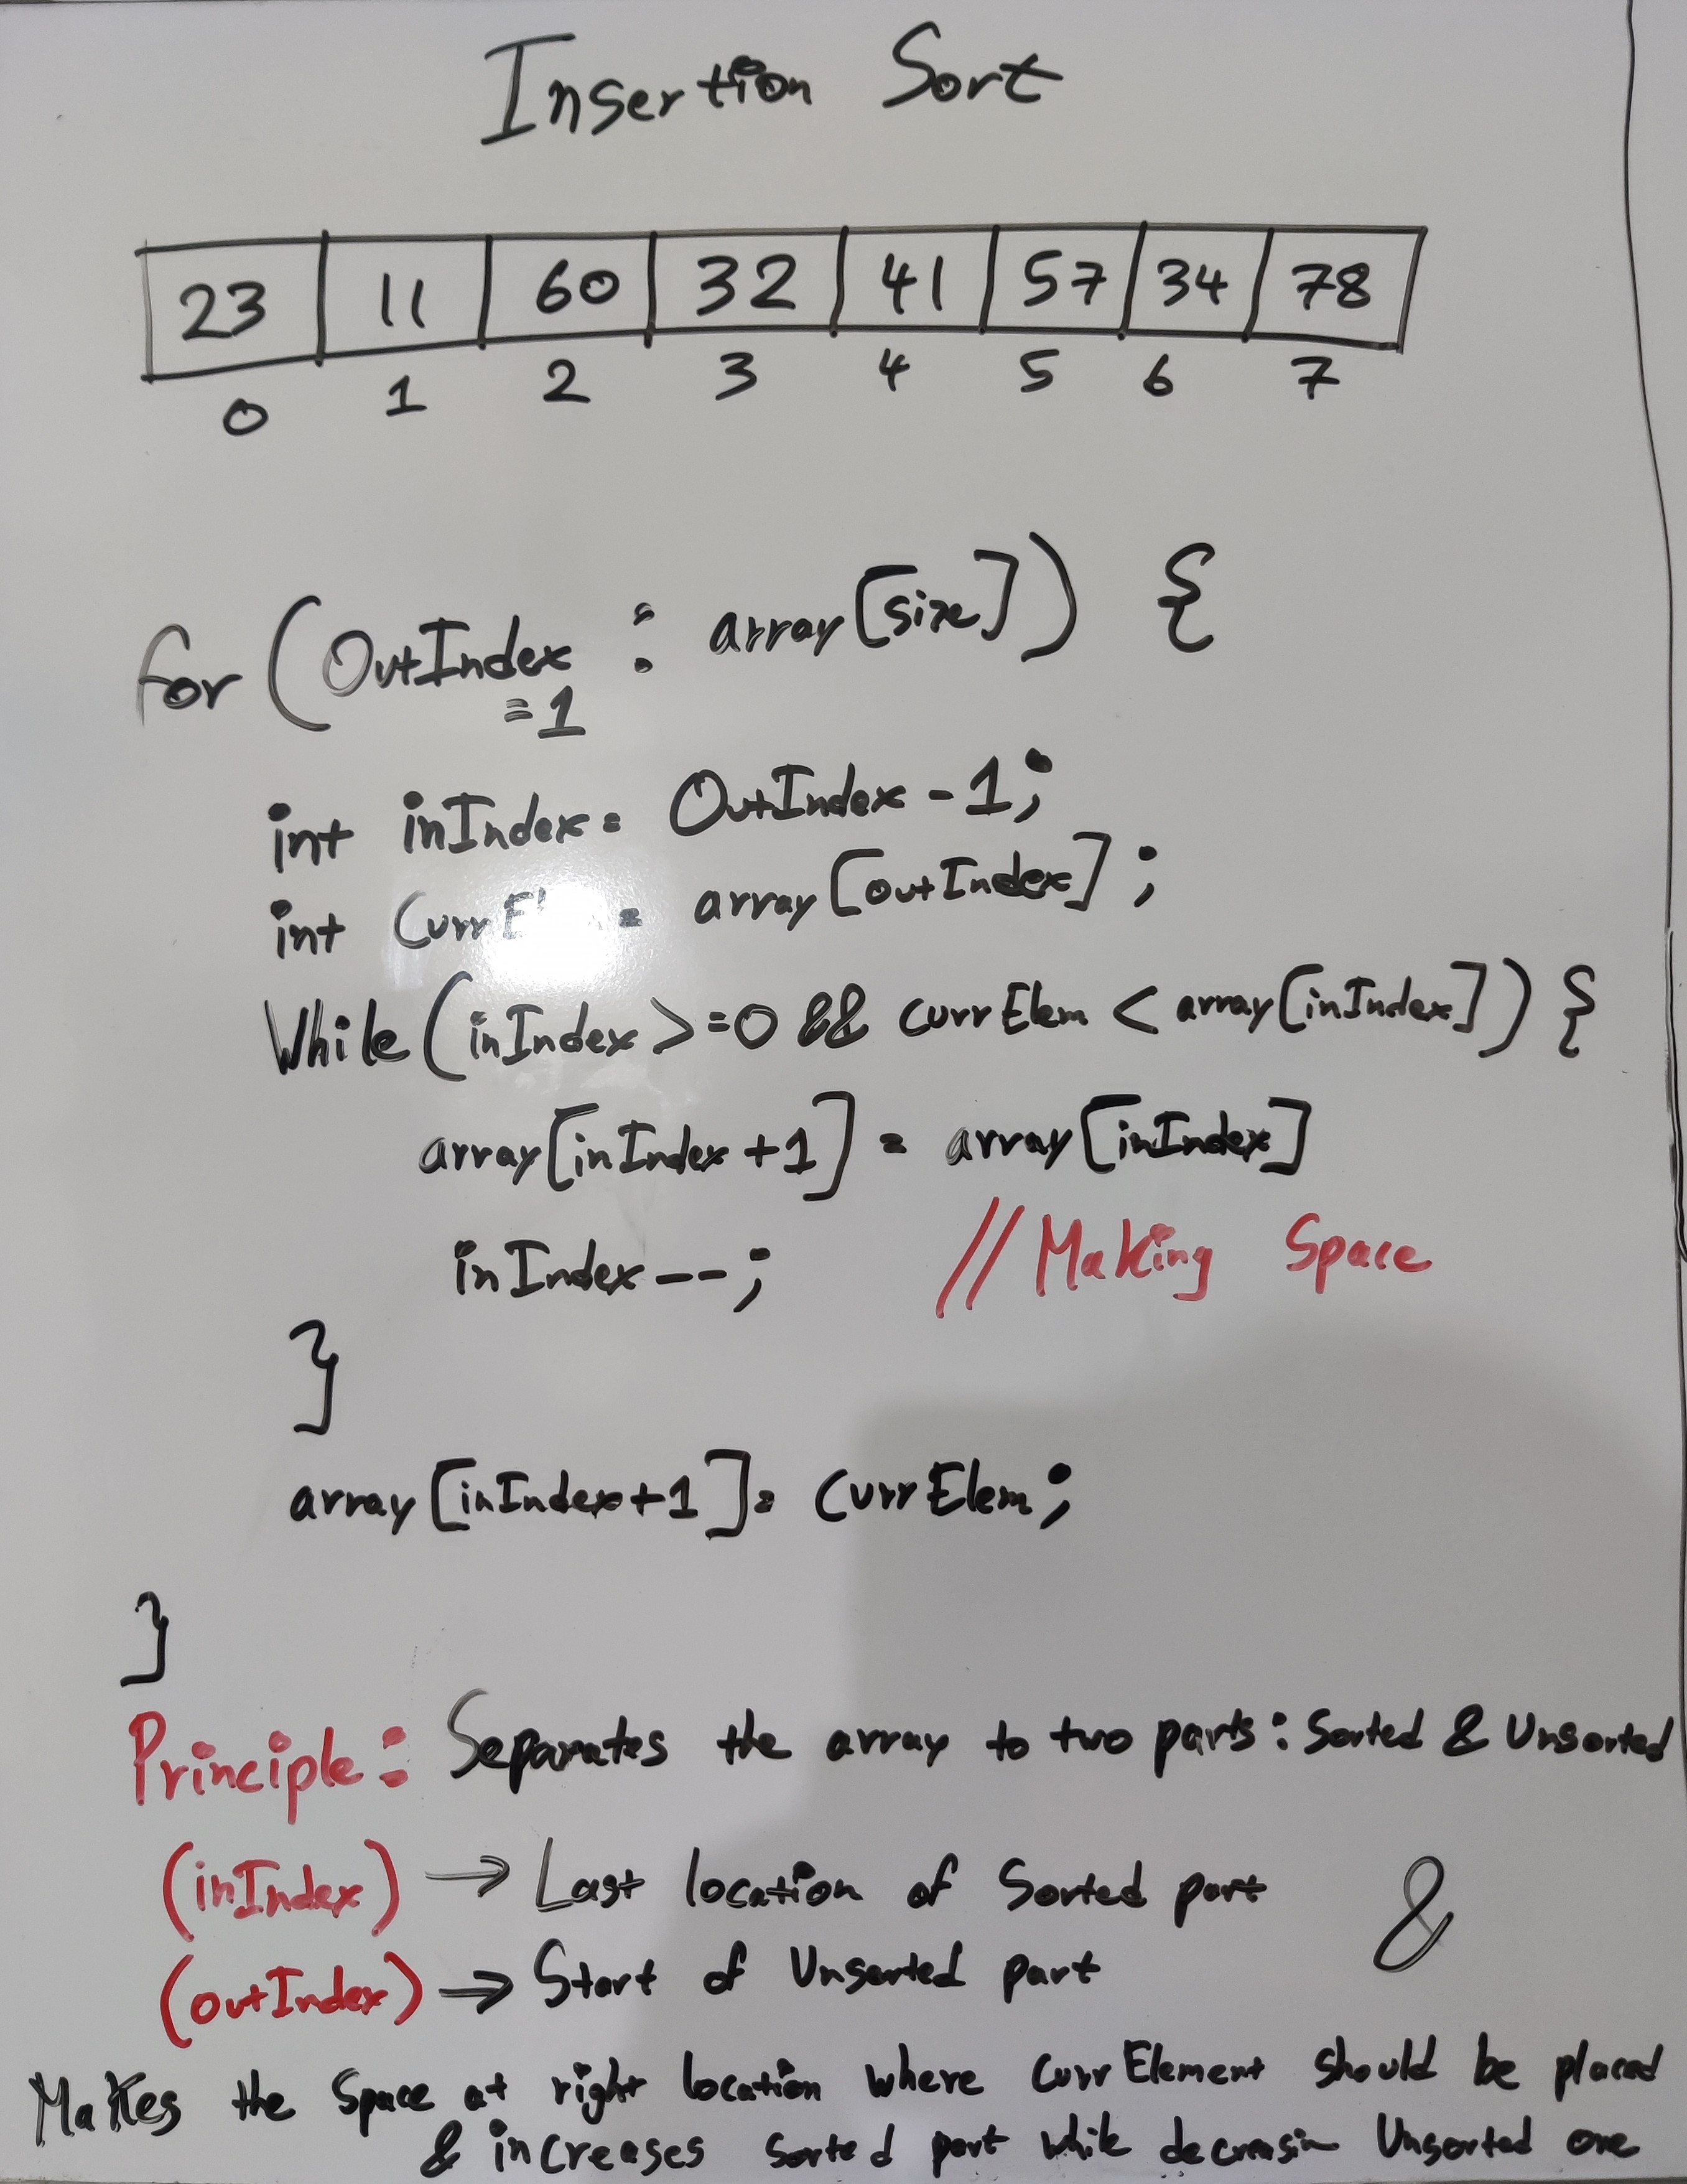 Insertion Sort
23 11 60 32 41 57 34 78
0 1 2 3 4 5 6 7
for (OutIndex : array[size]) {
=1
int inIndex = OutIndex - 1;
int = array[outIndex];
While (inIndex >= 0 && currElem < array[inIndex]) {
array[inIndex + 1] = array[inIndex]
inIndex --; // Making Space
}
array[inIndex+1] = CurrElem;
}
Principle: Separates the array to two parts: Sorted & Unsorted
(inIndex) → Last location of Sorted part &
(outIndex) → Start of Unsorted part
Makes the Space at right location where CurrElement should be placed
& increases sorted part while decreasin Unsorted one